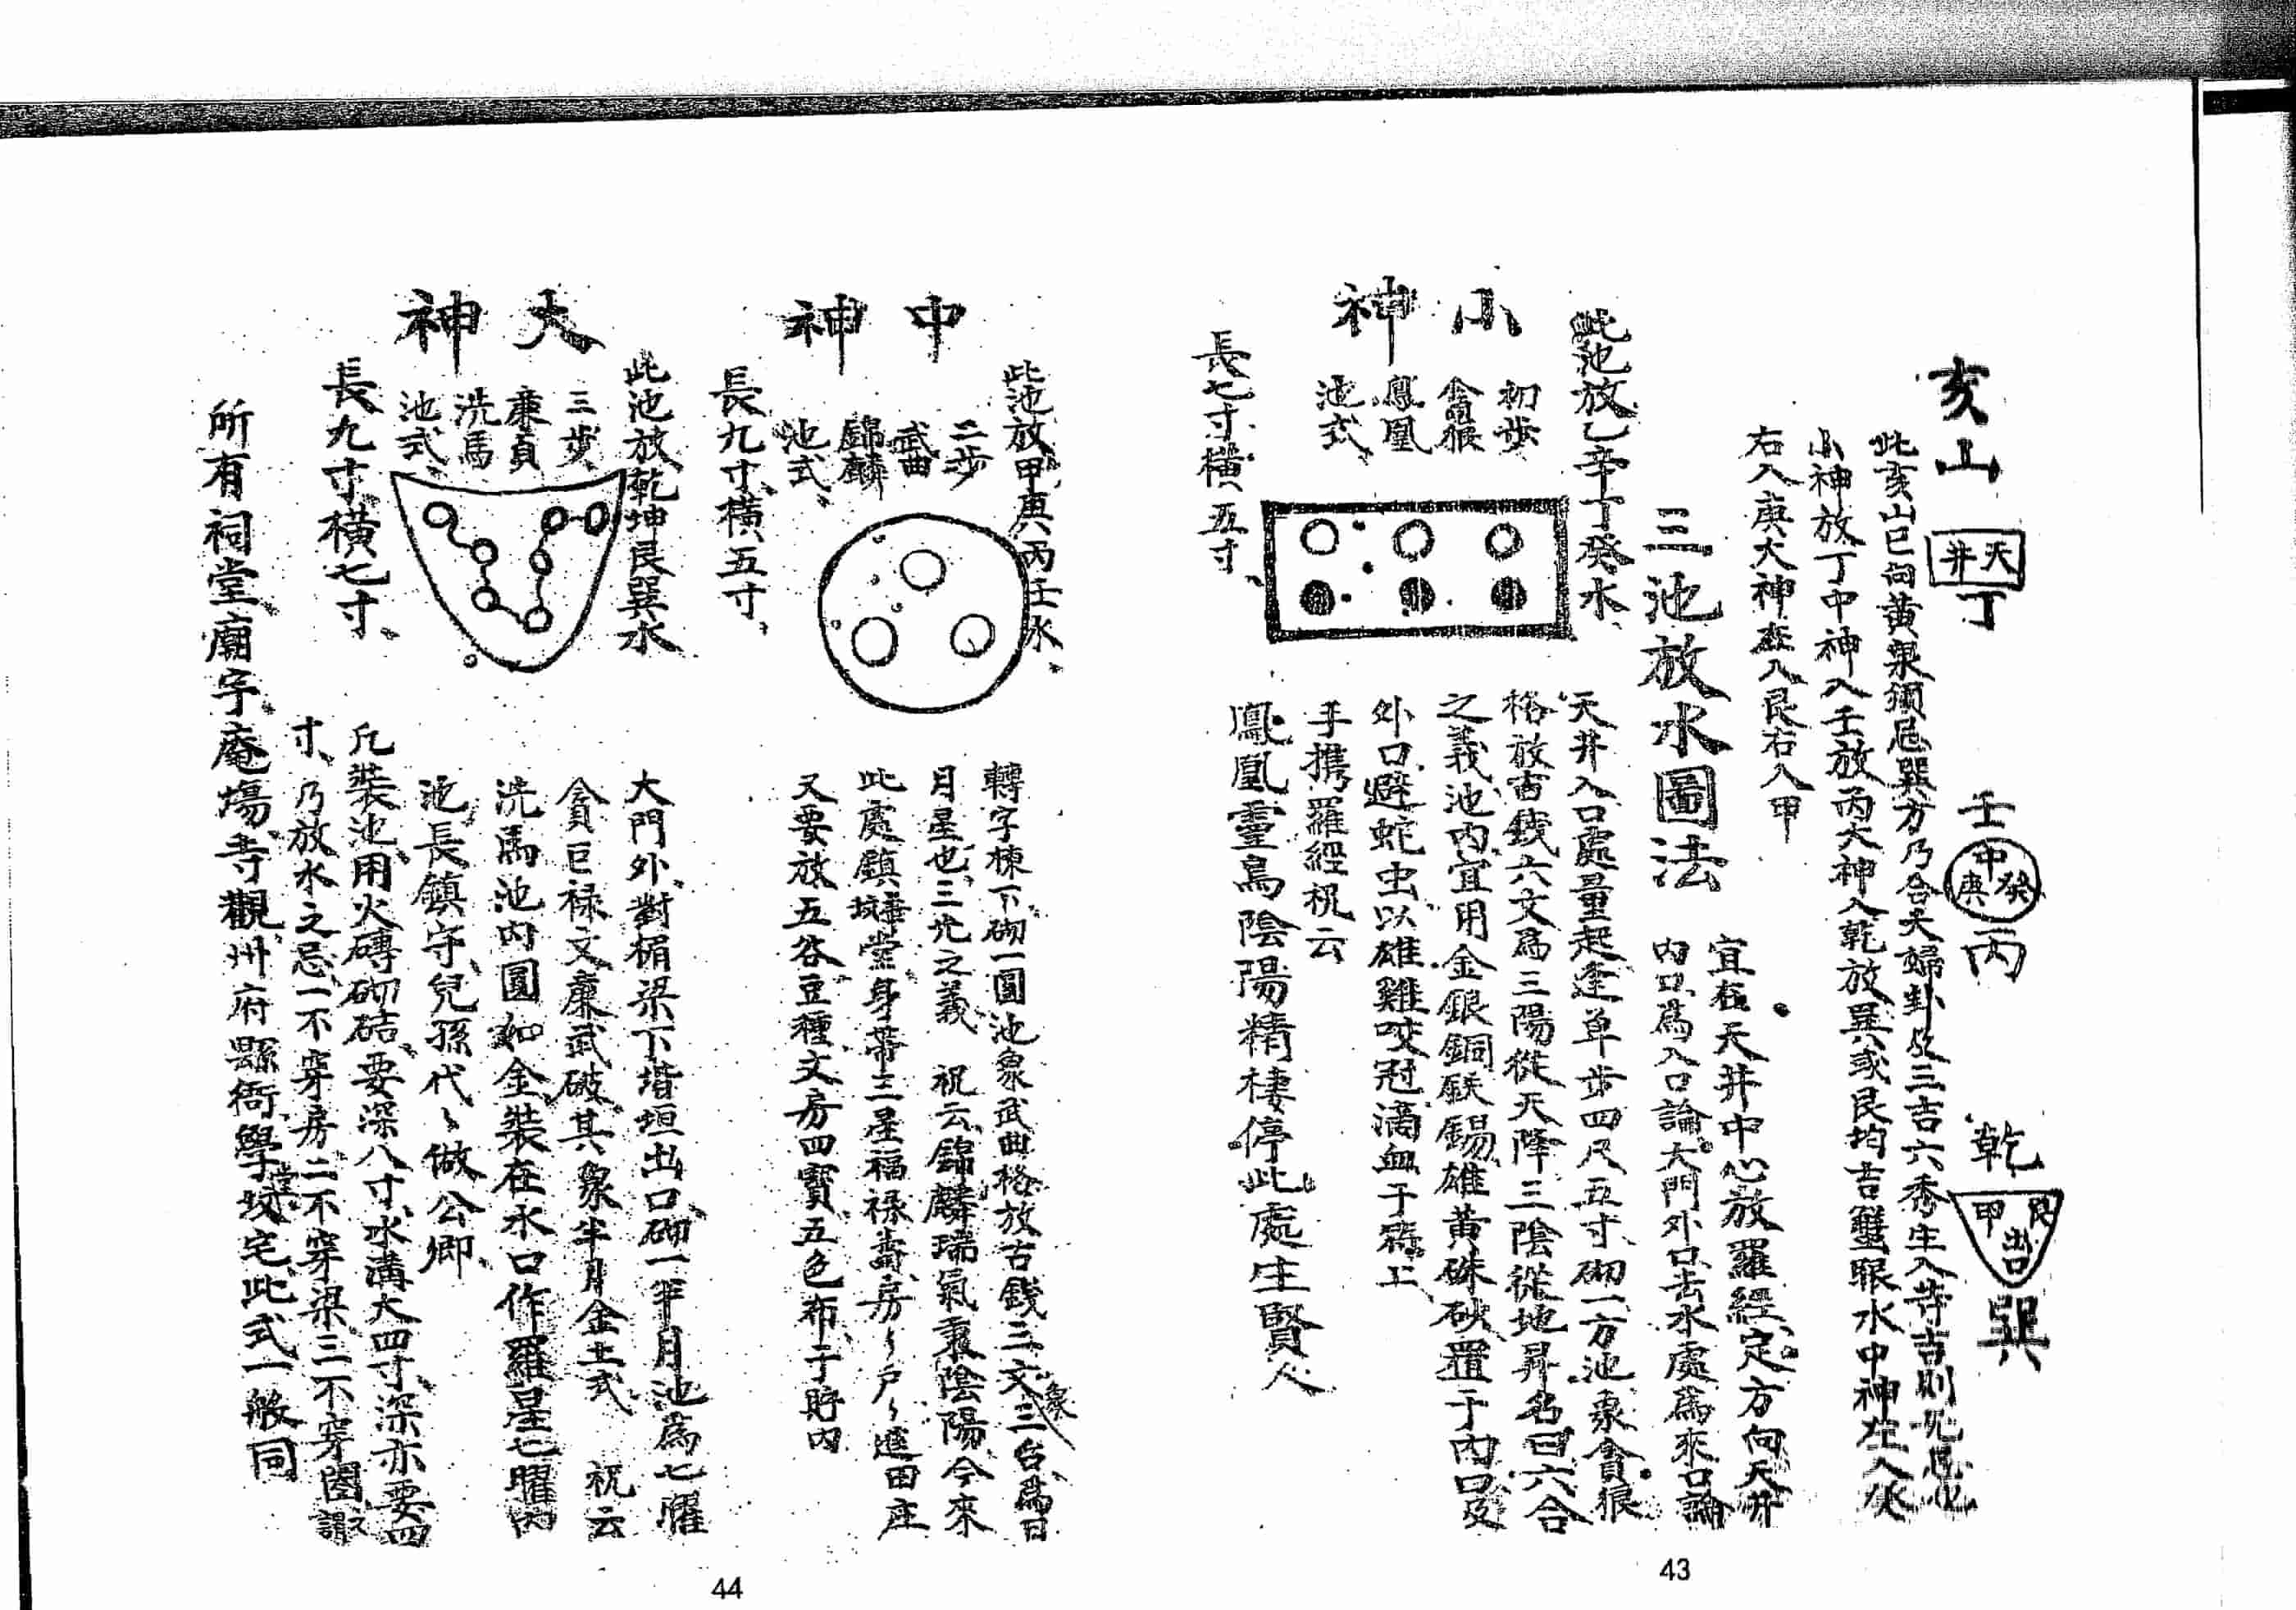 亥山
天井
丁
壬
中
癸
庚
丙
乾
艮
甲
出口
巽
此亥山巳向黃泉須忌巽方乃合夫婦卦及三吉六秀生入等吉則
小神放丁中神入壬放丙大神入乾放巽或艮均吉蟹眼水中神左入癸
右入庚大神左入艮右入甲
三池放水圖法
宜在天井中心放羅經定方向天井
內口為入口論大門外口去水處為來口論
此池放乙辛丁癸水
小神
初步
貪狼
鳳凰
池式
長七寸橫五寸
天井入口處量起逢单步四尺五寸砌一方池象貪狼
格放古錢六文為三陽從天降三陰從地昇名曰六合
之義池內宜用金銀銅鉄錫雄黃硃砂置于內口及
外口避蛇虫以雄雞咬冠滴血于上
手携羅經祝云
鳳凰靈鳥陰陽精棲停此處生賢人
43
此池放甲庚丙壬水
中神
二步
武曲
錦麟
池式
長九寸橫五寸
轉字棟下砌一圓池象武曲格放古錢三文象三台為日
月星也三光之義 祝云錦麟瑞氣秉陰陽今來
此處鎮華堂身帶三星福祿壽房〻戶〻進田庄
又要放五谷豆種文房四寶五色布于貯內
此池放乾坤艮巽水
大神
三步
廉貞
洗馬
池式
長九寸橫七寸
大門外對楣梁下堦垣出口砌一半月池為七耀
貪巨祿文廉武破其象半月金土式 祝云
洗馬池內圓如金裝在水口作羅星七曜內
池長鎮守兒孫代〻做公卿
凡裝池用火磚砌結要深八寸水溝大四寸深亦要四
寸乃放水之忌一不穿房二不穿梁三不穿閣
所有祠堂廟宇庵塲寺觀州府縣衙學堂坟宅此式一般同
44